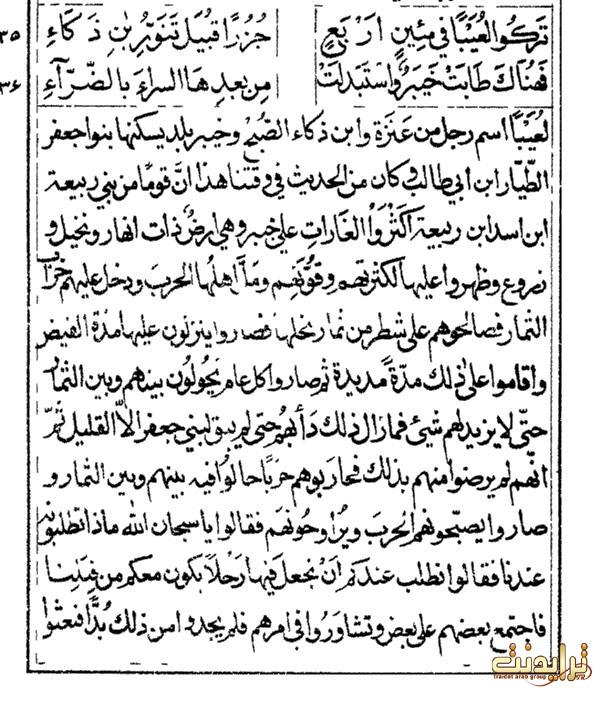 تركوا لعيبا في مئين اربع جزرا قبيل تنور بن ذكاء ٣٥
فهناك طابت خيبر واستبدلت من بعدها السراء بالضراء ٣٦
لعيبا اسم رجل من عنزة وابن ذكاء الصبح وخيبر بلد يسكنها بنو جعفر
الطيار ابن ابي طالب وكان من الحديث في وقتنا هذا ان قوما من بني ربيعة
ابن اسد ابن ربيعة اكثروا الغارات على خيبر وهي ارض ذات انهار ونخيل و
زروع وظهروا عليها لكثرتهم وقوتهم ومل اهلها الحرب ودخل عليهم خراب
الثمار فصالحوهم على شطر من ثمار نخلها فصاروا ينزلون عليها مدة القيض
واقاموا على ذلك مدة مديدة ثم صاروا كل عام يحولون بينهم وبين الثمار
حتى لا يزيد لهم شيئ فمازال ذلك دأبهم حتى لم يبق لبني جعفر الا القليل ثم
انهم لم يرضوا منهم بذلك فحاربوهم حربا حالوا فيه بينهم وبين الثمار و
صاروا يصبحونهم الحرب ويراوحونهم فقالوا يا سبحان الله ماذا تطلبون
عندنا فقالوا نطلب عندكم ان نجعل فيها رجلا يكون معكم من قبلنا
فاجتمع بعضهم على بعض وتشاوروا في امرهم فلم يجدوا من ذلك بدا فبعثوا
ترايدنت
traidnt arab group